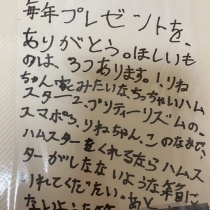 毎年プレゼントを、
ありがとう。ほしいも
のは、3つあります。1.りね
ちゃん家みたいなちっちゃいハム
スター2.プリティーリズムの、
スマホ3.りねちゃん。このなかで、
ハムスターをくれるたらハムス
ターがしなないような箱に
いれてください。あと